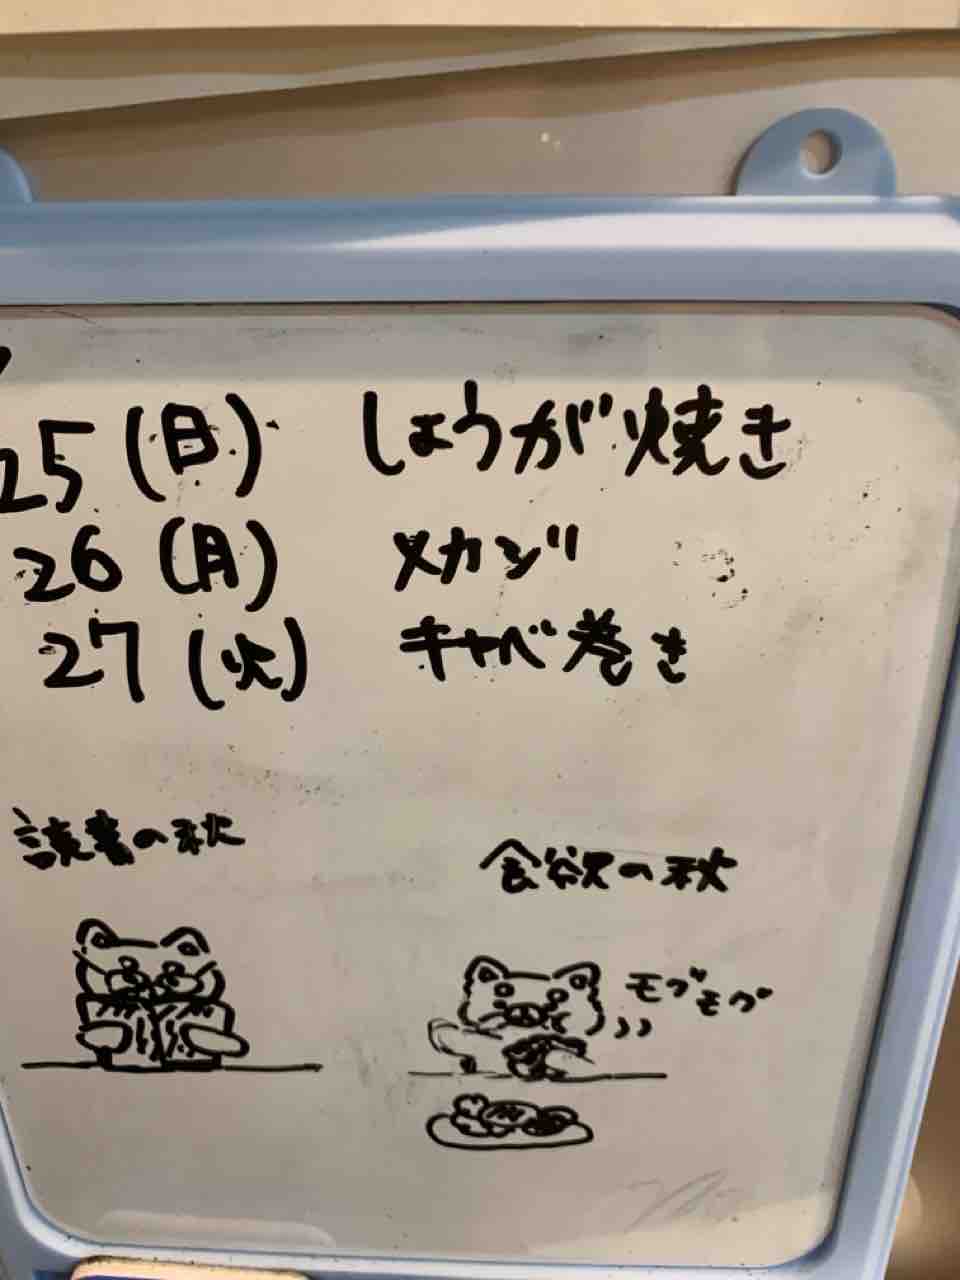 25(日) しょうが焼き
26(月) メカジ
27(火) キャベ巻き
読書の秋
食欲の秋
モグモグ